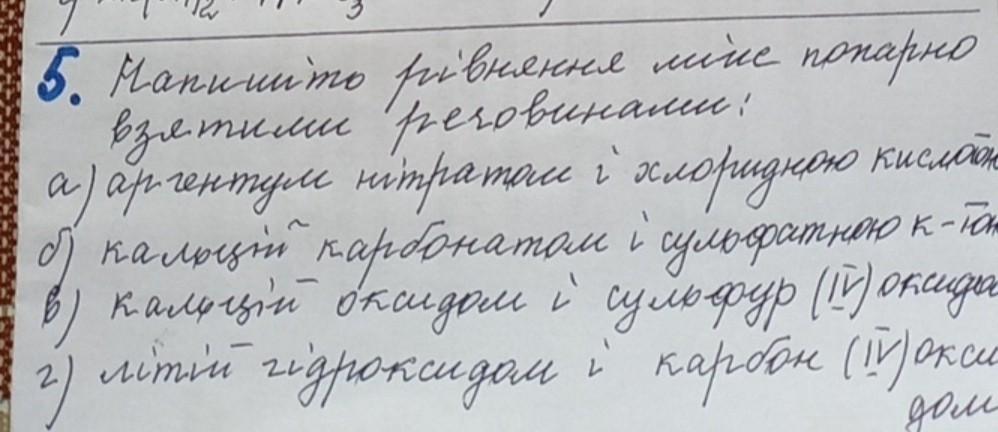 5. Напишіть рівняння між попарно
взятими речовинами:
а) аргентум нітратом і хлоридною
б) кальцій карбонатом і сульфатною к-
в) кальцій оксидом і сульфур (IV)
г) літій гідроксидом і карбон (IV) окси
дом